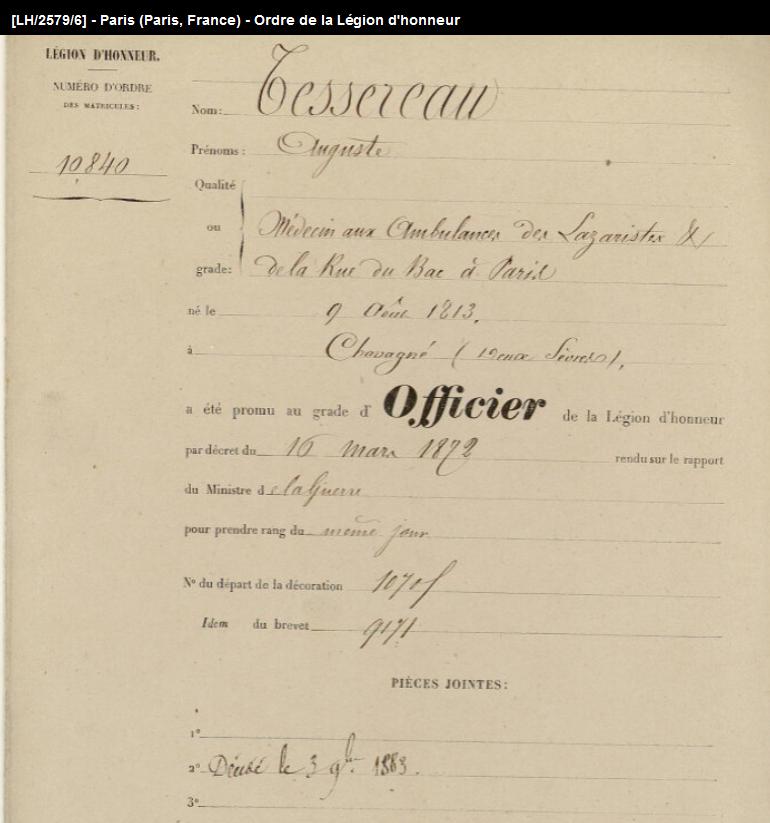 [LH/2579/6] - Paris (Paris, France) - Ordre de la Légion d'honneur
LÉGION D'HONNEUR.
NUMÉRO D'ORDRE
DES MATRICULES:
10840
Nom: Tessereau
Prénoms: Auguste
Qualité
ou
grade:
Médecin aux Ambulances des Lazaristes &
de la Rue du Bac à Paris
né le 9 Août 1813.
à Chavagné (Deux Sèvres),
a été promu au grade d' Officier de la Légion d'honneur
par décret du 16 mars 1872 rendu sur le rapport
du Ministre de la Guerre
pour prendre rang du même jour
N° du départ de la décoration
Idem du brevet 9171
PIÈCES JOINTES:
1°
2° Décédé le 3 9bre 1883.
3°